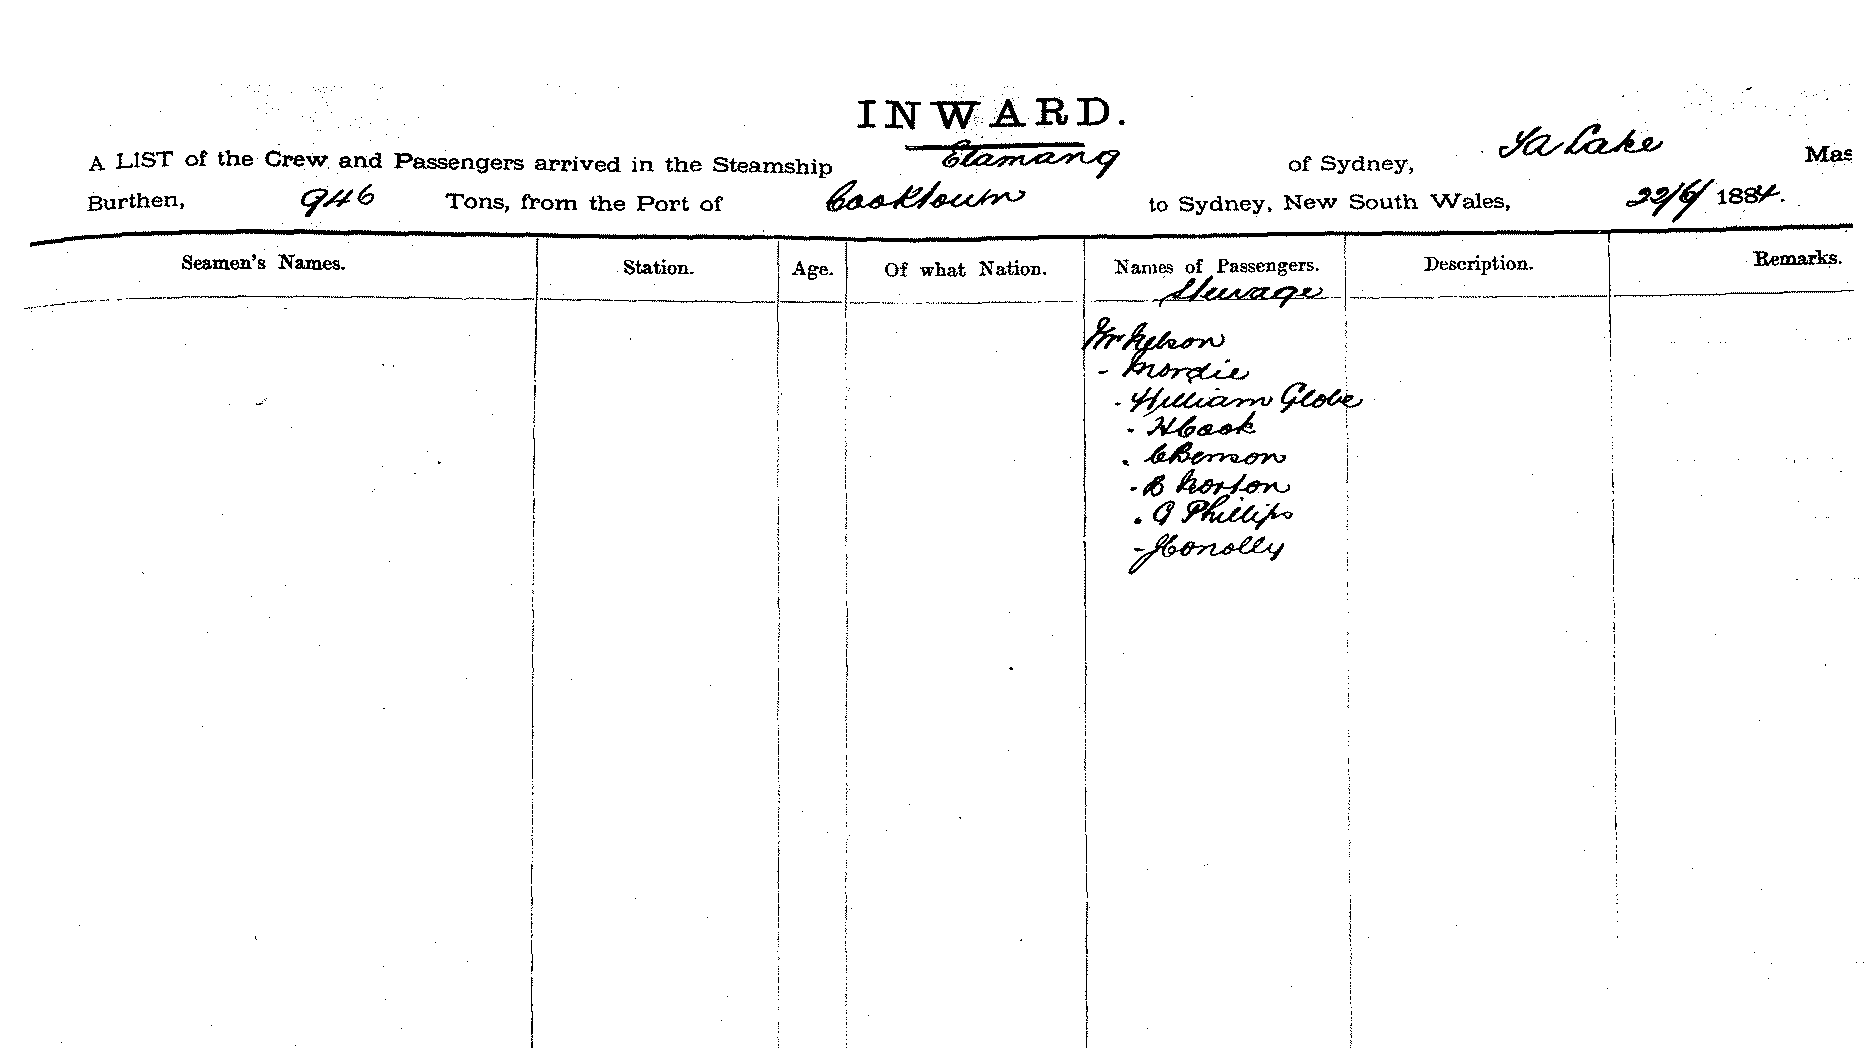 INWARD.
A LIST of the Crew and Passengers arrived in the Steamship Elamang of Sydney, Lake Mas
Burthen, 946 Tons, from the Port of Cooktown to Sydney, New South Wales, 22/6/ 1884.
Seamen's Names. Station. Age. Of what Nation. Names of Passengers. Description. Remarks.
Steerage
Mr Nelson
- Mordie
- William Globe
- H Cook
- C Benson
- B Norton
- G Phillips
- J Conolly